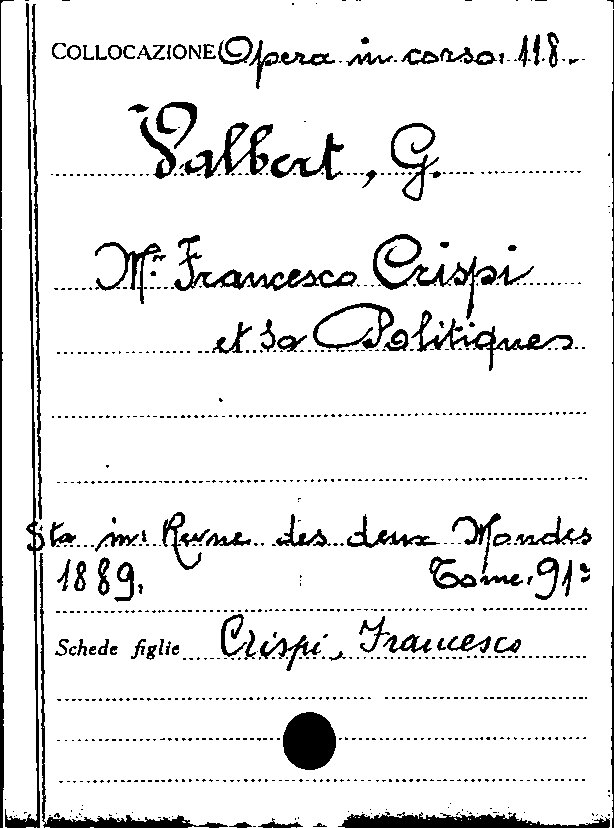 COLLOCAZIONE Opera in corso. 118.
Valbert, G.
Mr. Francesco Crispi
et sa Politiques
Sta in: Revue des deux Mondes
1889. Tome. 91º
Schede figlie Crispi, Francesco